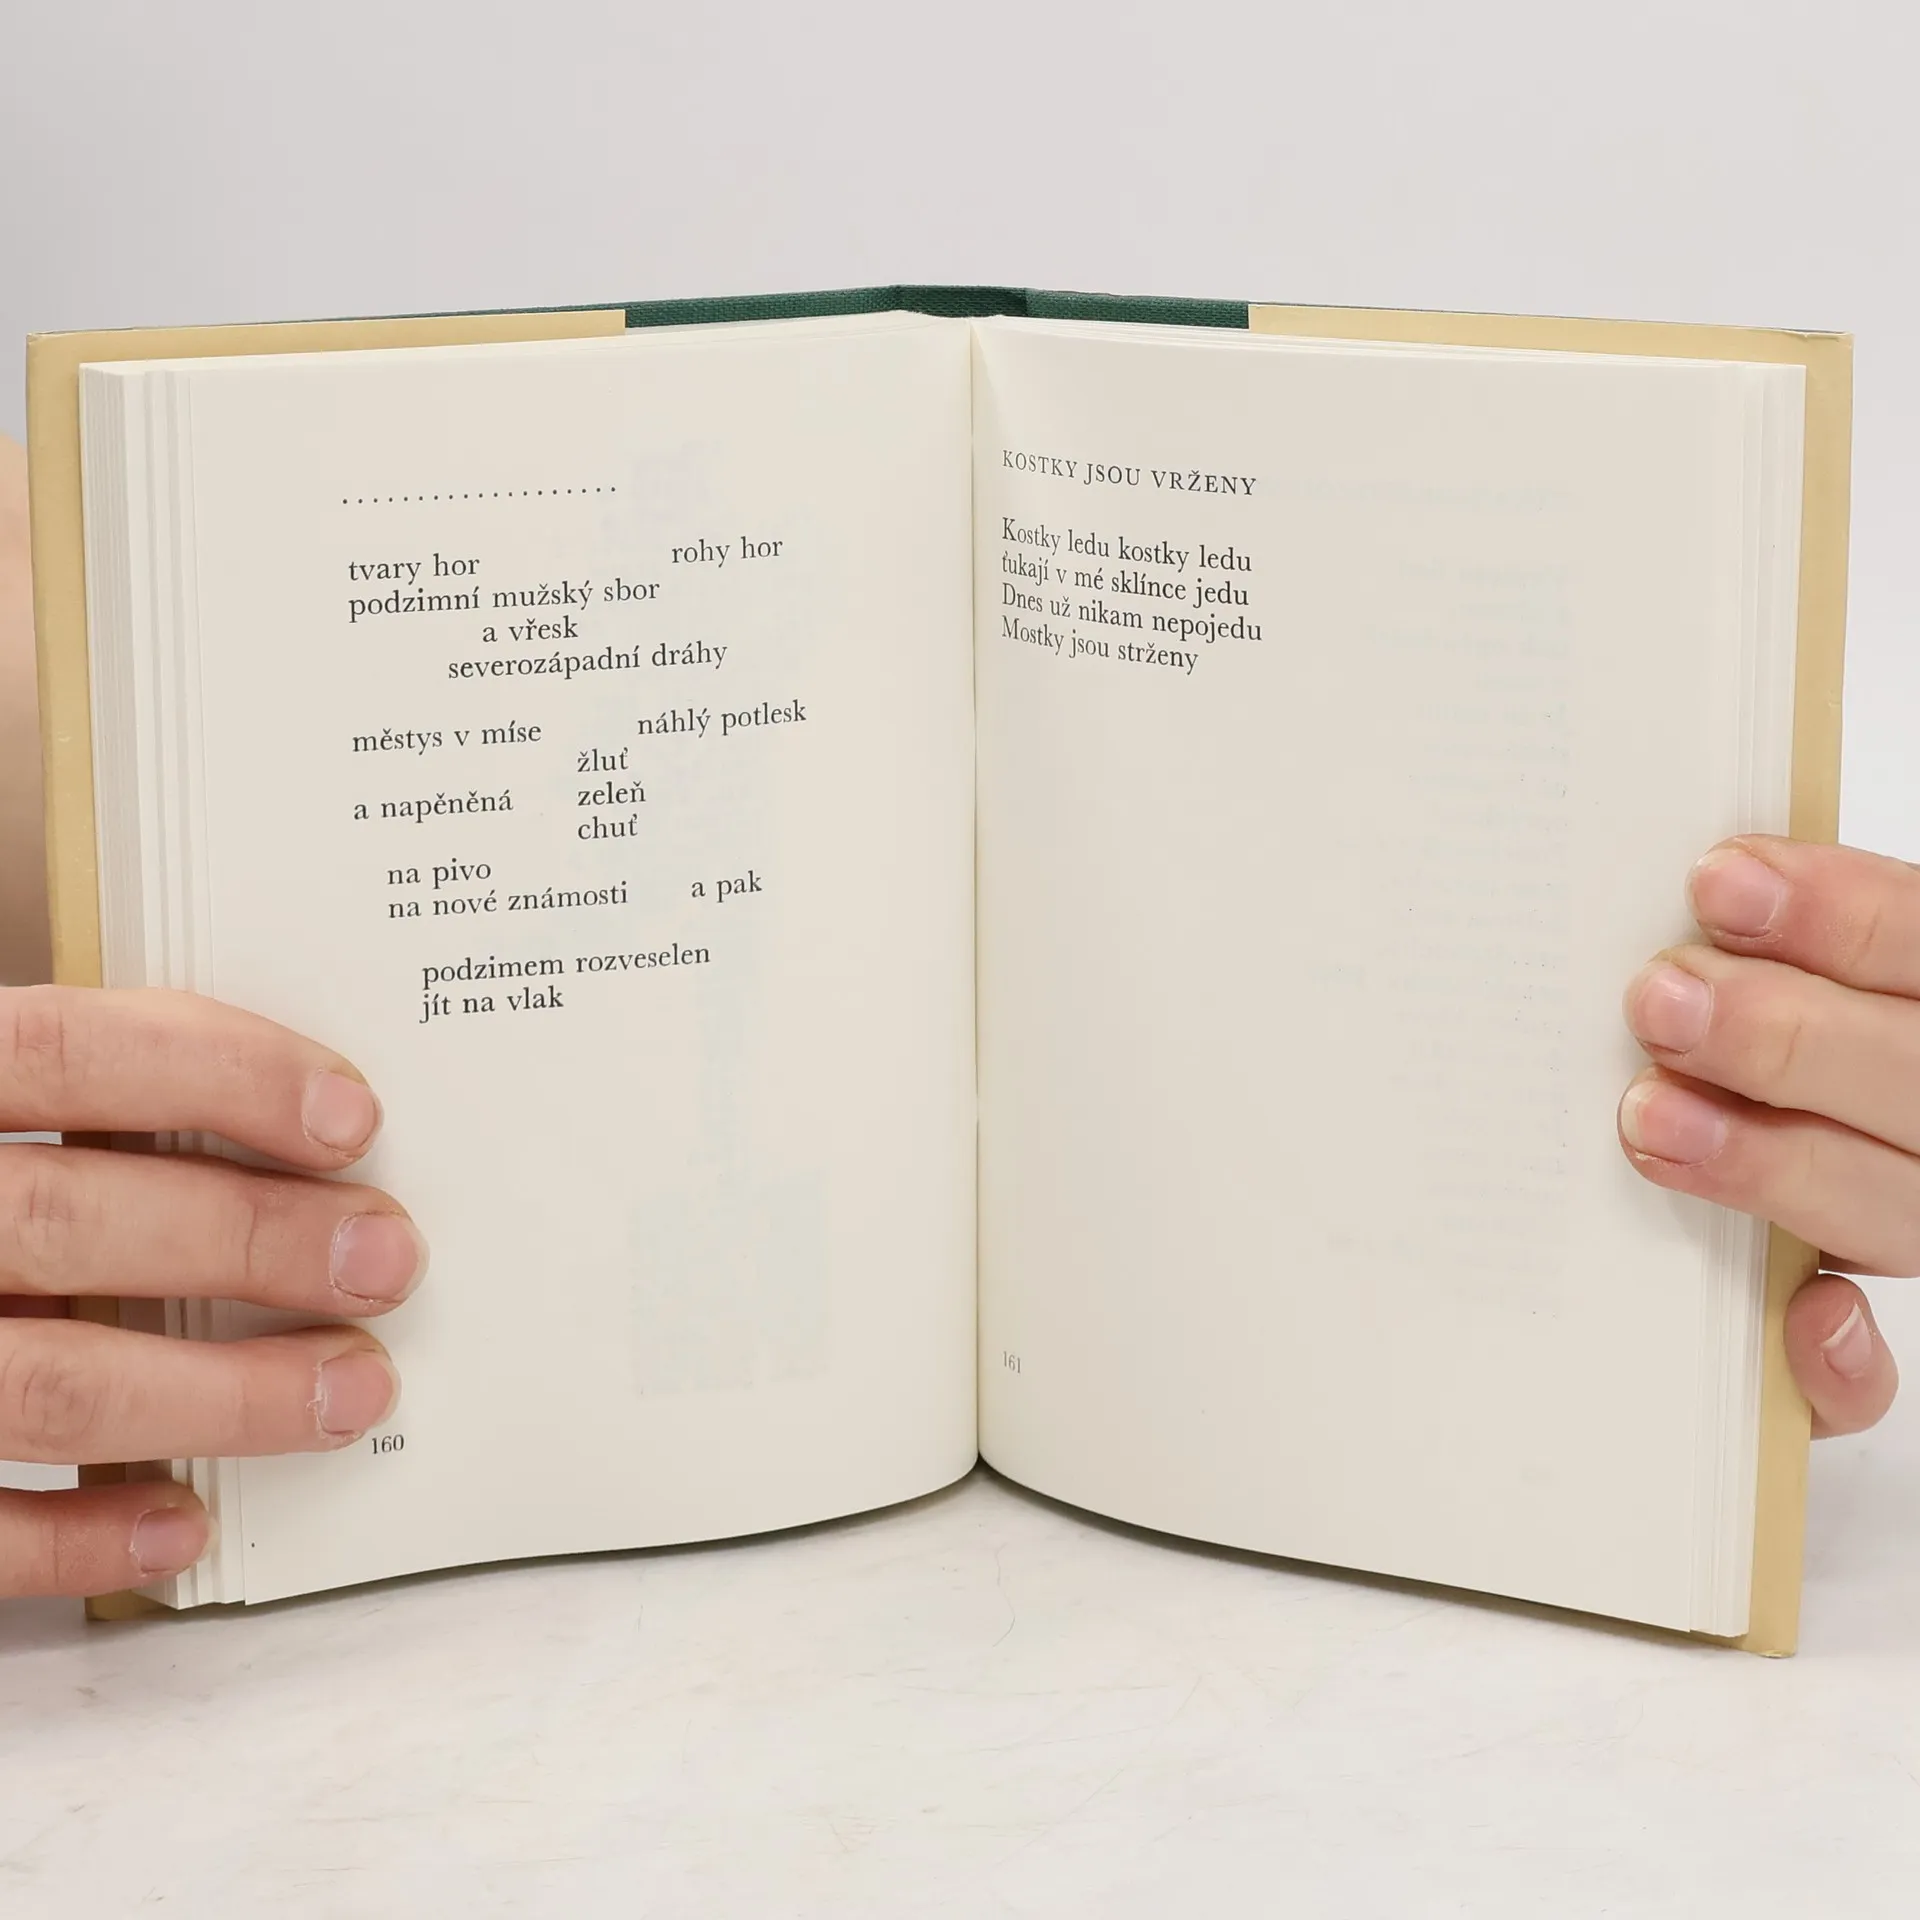 ...................
tvary hor rohy hor
podzimní mužský sbor
a vřesk
severozápadní dráhy
městys v míse náhlý potlesk
žluť
a napěněná zeleň
chuť
na pivo
na nové známosti a pak
podzimem rozveselen
jít na vlak
160
KOSTKY JSOU VRŽENY
Kostky ledu kostky ledu
ťukají v mé sklínce jedu
Dnes už nikam nepojedu
Mostky jsou strženy
161